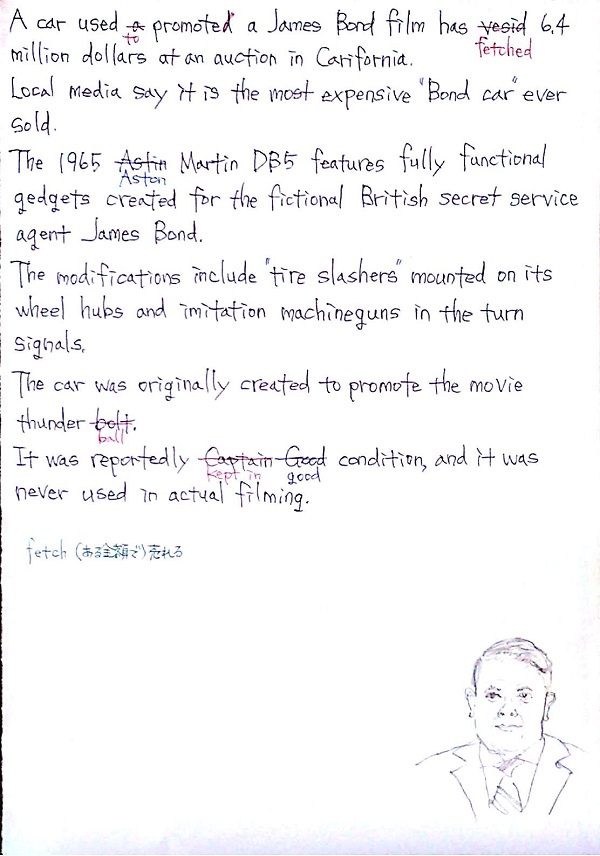 A car used a promoted a James Bond film has yesid 6.4
to
fetched
million dollars at an auction in Carifornia.
Local media say it is the most expensive "Bond car" ever
sold.
The 1965 Astin Martin DB5 features fully functional
Aston
gedgets created for the fictional British secret service
agent James Bond.
The modifications include "tire slashers" mounted on its
wheel hubs and imitation machineguns in the turn
signals.
The car was originally created to promote the movie
thunder bolt.
ball
It was reportedly Captain Good condition, and it was
kept in good
never used in actual filming.
fetch (ある金額で)売れる